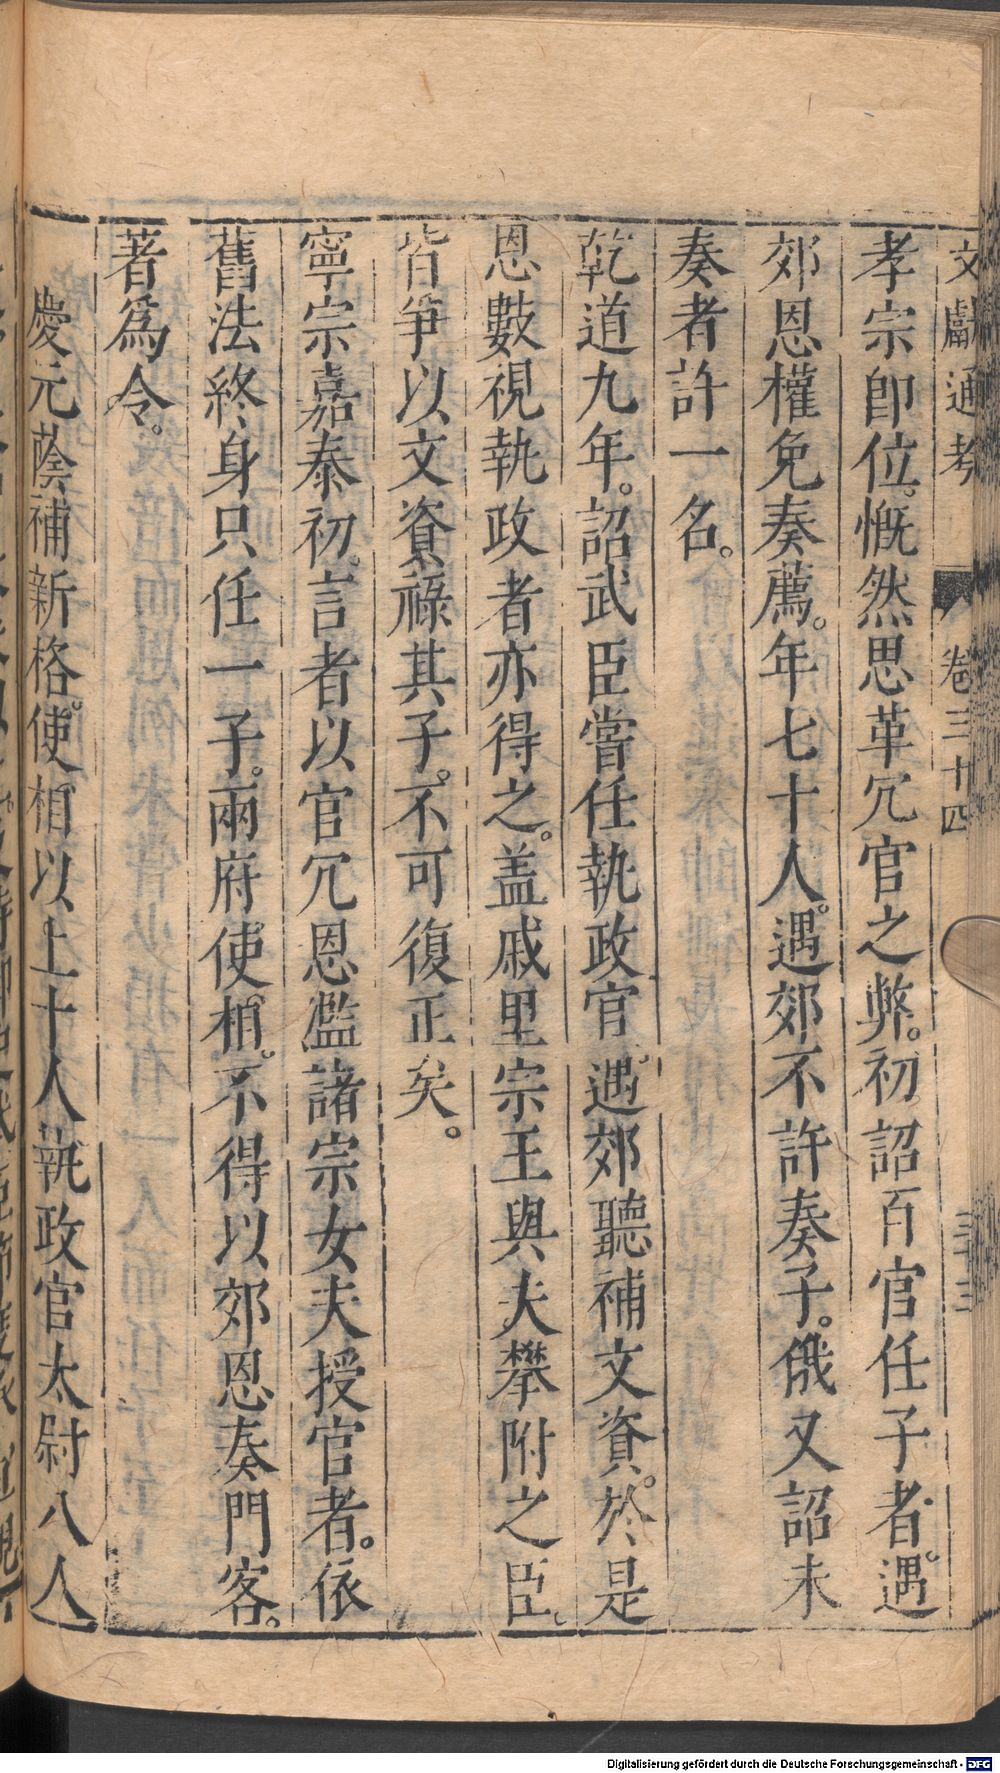 文獻通考 卷三十四 三十三
孝宗卽位。慨然思革冗官之弊。初詔百官任子者。遇
郊恩權免奏薦。年七十人。遇郊不許奏子。俄又詔未
奏者許一名。
乾道九年。詔武臣嘗任執政官。遇郊聽補文資。於是
恩數視執政者亦得之。盖戚里宗王與夫攀附之臣。
皆爭以文資祿其子。不可復正矣。
寧宗嘉泰初。言者以官冗恩濫諸宗女夫授官者。依
舊法終身只任一子。兩府使相。不得以郊恩奏門客。
著爲令。
慶元蔭補新格。使相以上十人執政官太尉八人
Digitalisierung gefördert durch die Deutsche Forschungsgemeinschaft - DFG